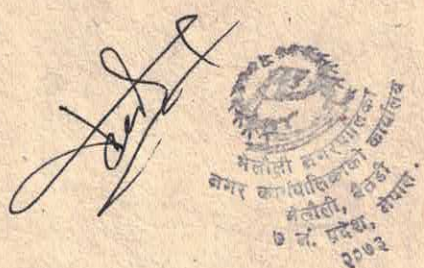 मेलौली नगरपालिका
नगर कार्यपालिकाको कार्यालय
मेलौली, बैतडी
७ नं. प्रदेश, नेपाल.
२०७३